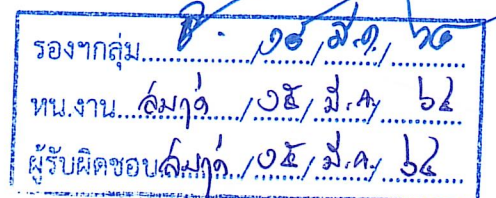 รองฯกลุ่ม.......... /๑๕/มี.ค./๖๔
หน.งาน.......... /๑๕/มี.ค./๖๔
ผู้รับผิดชอบ.......... /๑๕/มี.ค./๖๔